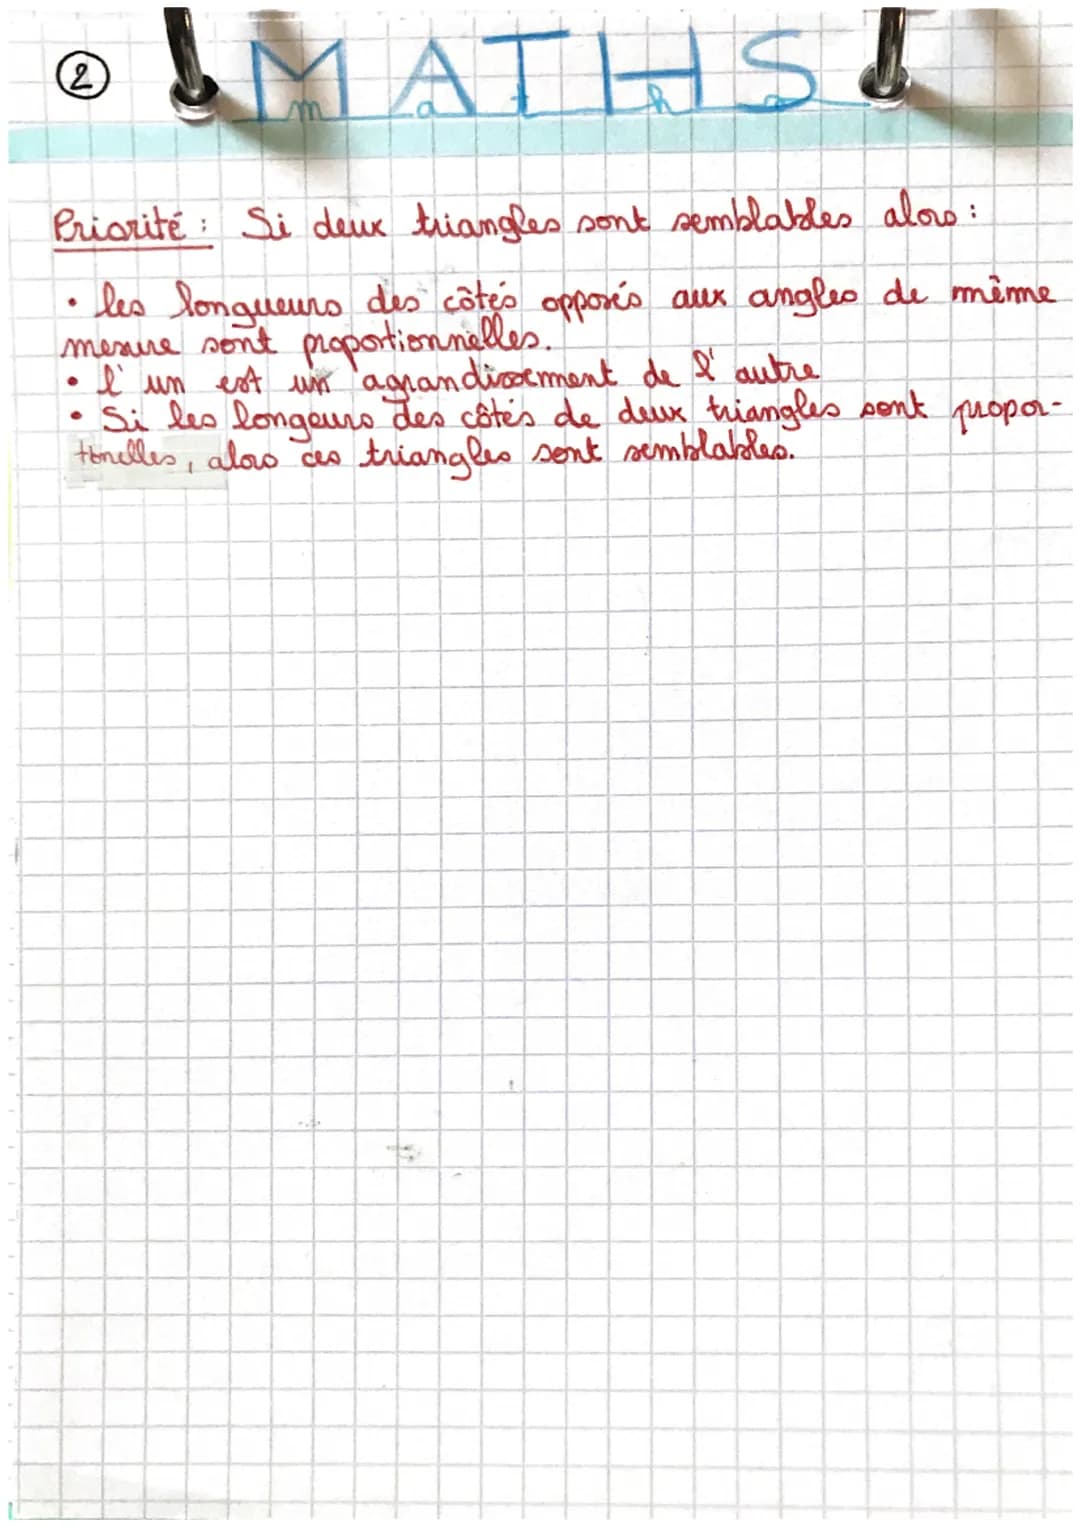 ② MATHS
maths
Priorité : Si deux triangles sont semblables alors :
• les longueurs des côtés opposés aux angles de même
mesure sont proportionnelles.
• l'un est un agrandissement de l'autre
• Si les longeurs des côtés de deux triangles sont propor-
tionelles, alors ces triangles sont semblables.